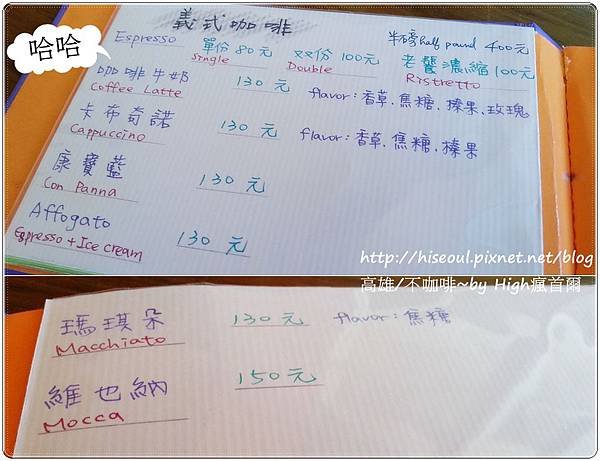 義式咖啡
哈哈
Espresso 單份80元 双份100元 半磅half pound 400元
Single Double 老饕濃縮100元
Ristretto
咖啡牛奶 130元 flavor:香草.焦糖.榛果.玫瑰
Coffee Latte
卡布奇諾 130元 flavor:香草.焦糖.榛果
Cappuccino
康寶藍 130元
Con Panna
Affogato
Espresso + Ice cream 130元
http://hiseoul.pixnet.net/blog
高雄/不咖啡~by High瘋首爾
瑪琪朵 130元 flavor:焦糖
Macchiato
維也納 150元
Mocca